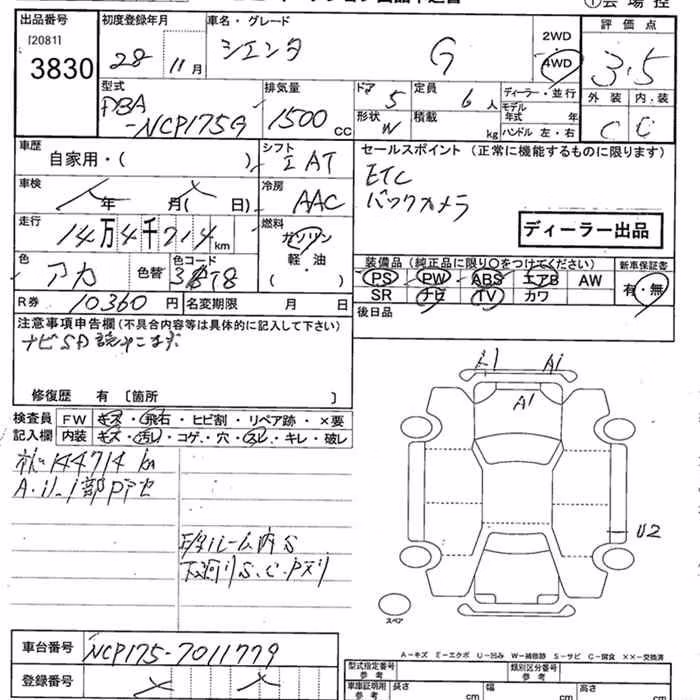 出品番号 初度登録年月 車名・グレード 2WD 評価点
[2081] 28 11月 シエンタ G 4WD 3.5
3830
型式 排気量 ドア 定員 ディーラー・並行 外装 内装
DBA
-NCP175G 1500cc 5 6人 モデル年式 年 C C
形状 W 積載 kg ハンドル 左・右
車歴 シフト セールスポイント (正常に機能するものに限ります)
自家用・( ) I AT ETC
車検 冷房 バックカメラ
年 月( 日) AAC
走行 燃料 ディーラー出品
14万4千714km ガソリン
軽・油
( )
色 色替 色コード 装備品 (純正品に限り○をつけてください) 新車保証書
アカ PS PW ABS エアB AW 有・無
R券 10360円 名変期限 月 日 SR ナビ TV カワ
注意事項申告欄(不具合内容等は具体的に記入して下さい) 後日品
修復歴 有 [箇所 ]
検査員 FW キズ・飛石・ヒビ割・リペア跡・×要
記入欄 内装 キズ・汚れ・コゲ・穴・スレ・キレ・破レ
144714 km
A1 A1
A1
U2
下廻りS.C.Pスリ
スペア
A−キズ E−エクボ U−凹み W−補修跡 S−サビ C−腐食 ××−交換済
車台番号 NCP175-7011779
登録番号
型式指定番号 参考 類別区分番号 参考
車庫証明用 参考 長さ cm 幅 cm 高さ cm